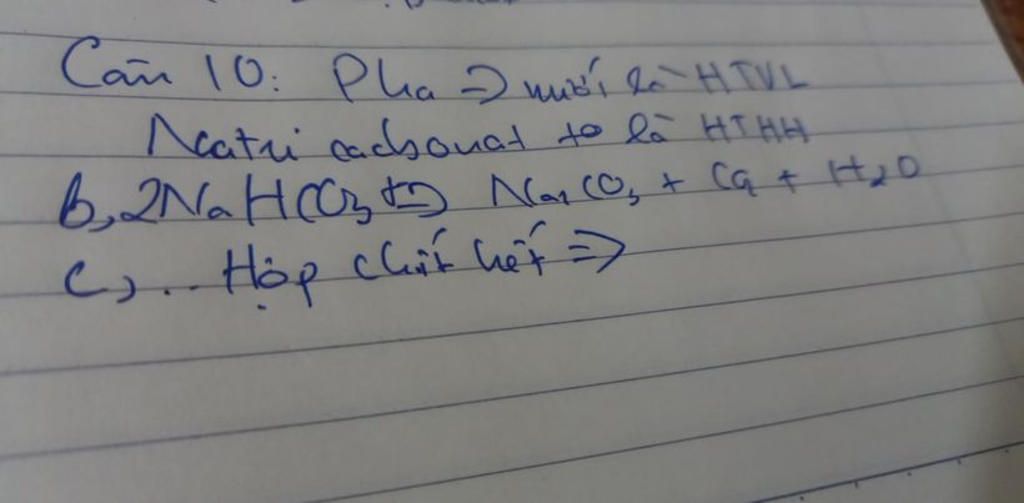 Câu 10: Pha => muối là HTVL
Natri cacbonat to là HTHH
b, 2NaHCO3 to=> Na2CO3 + CO2 + H2O
c, .. Hợp chất hết =>